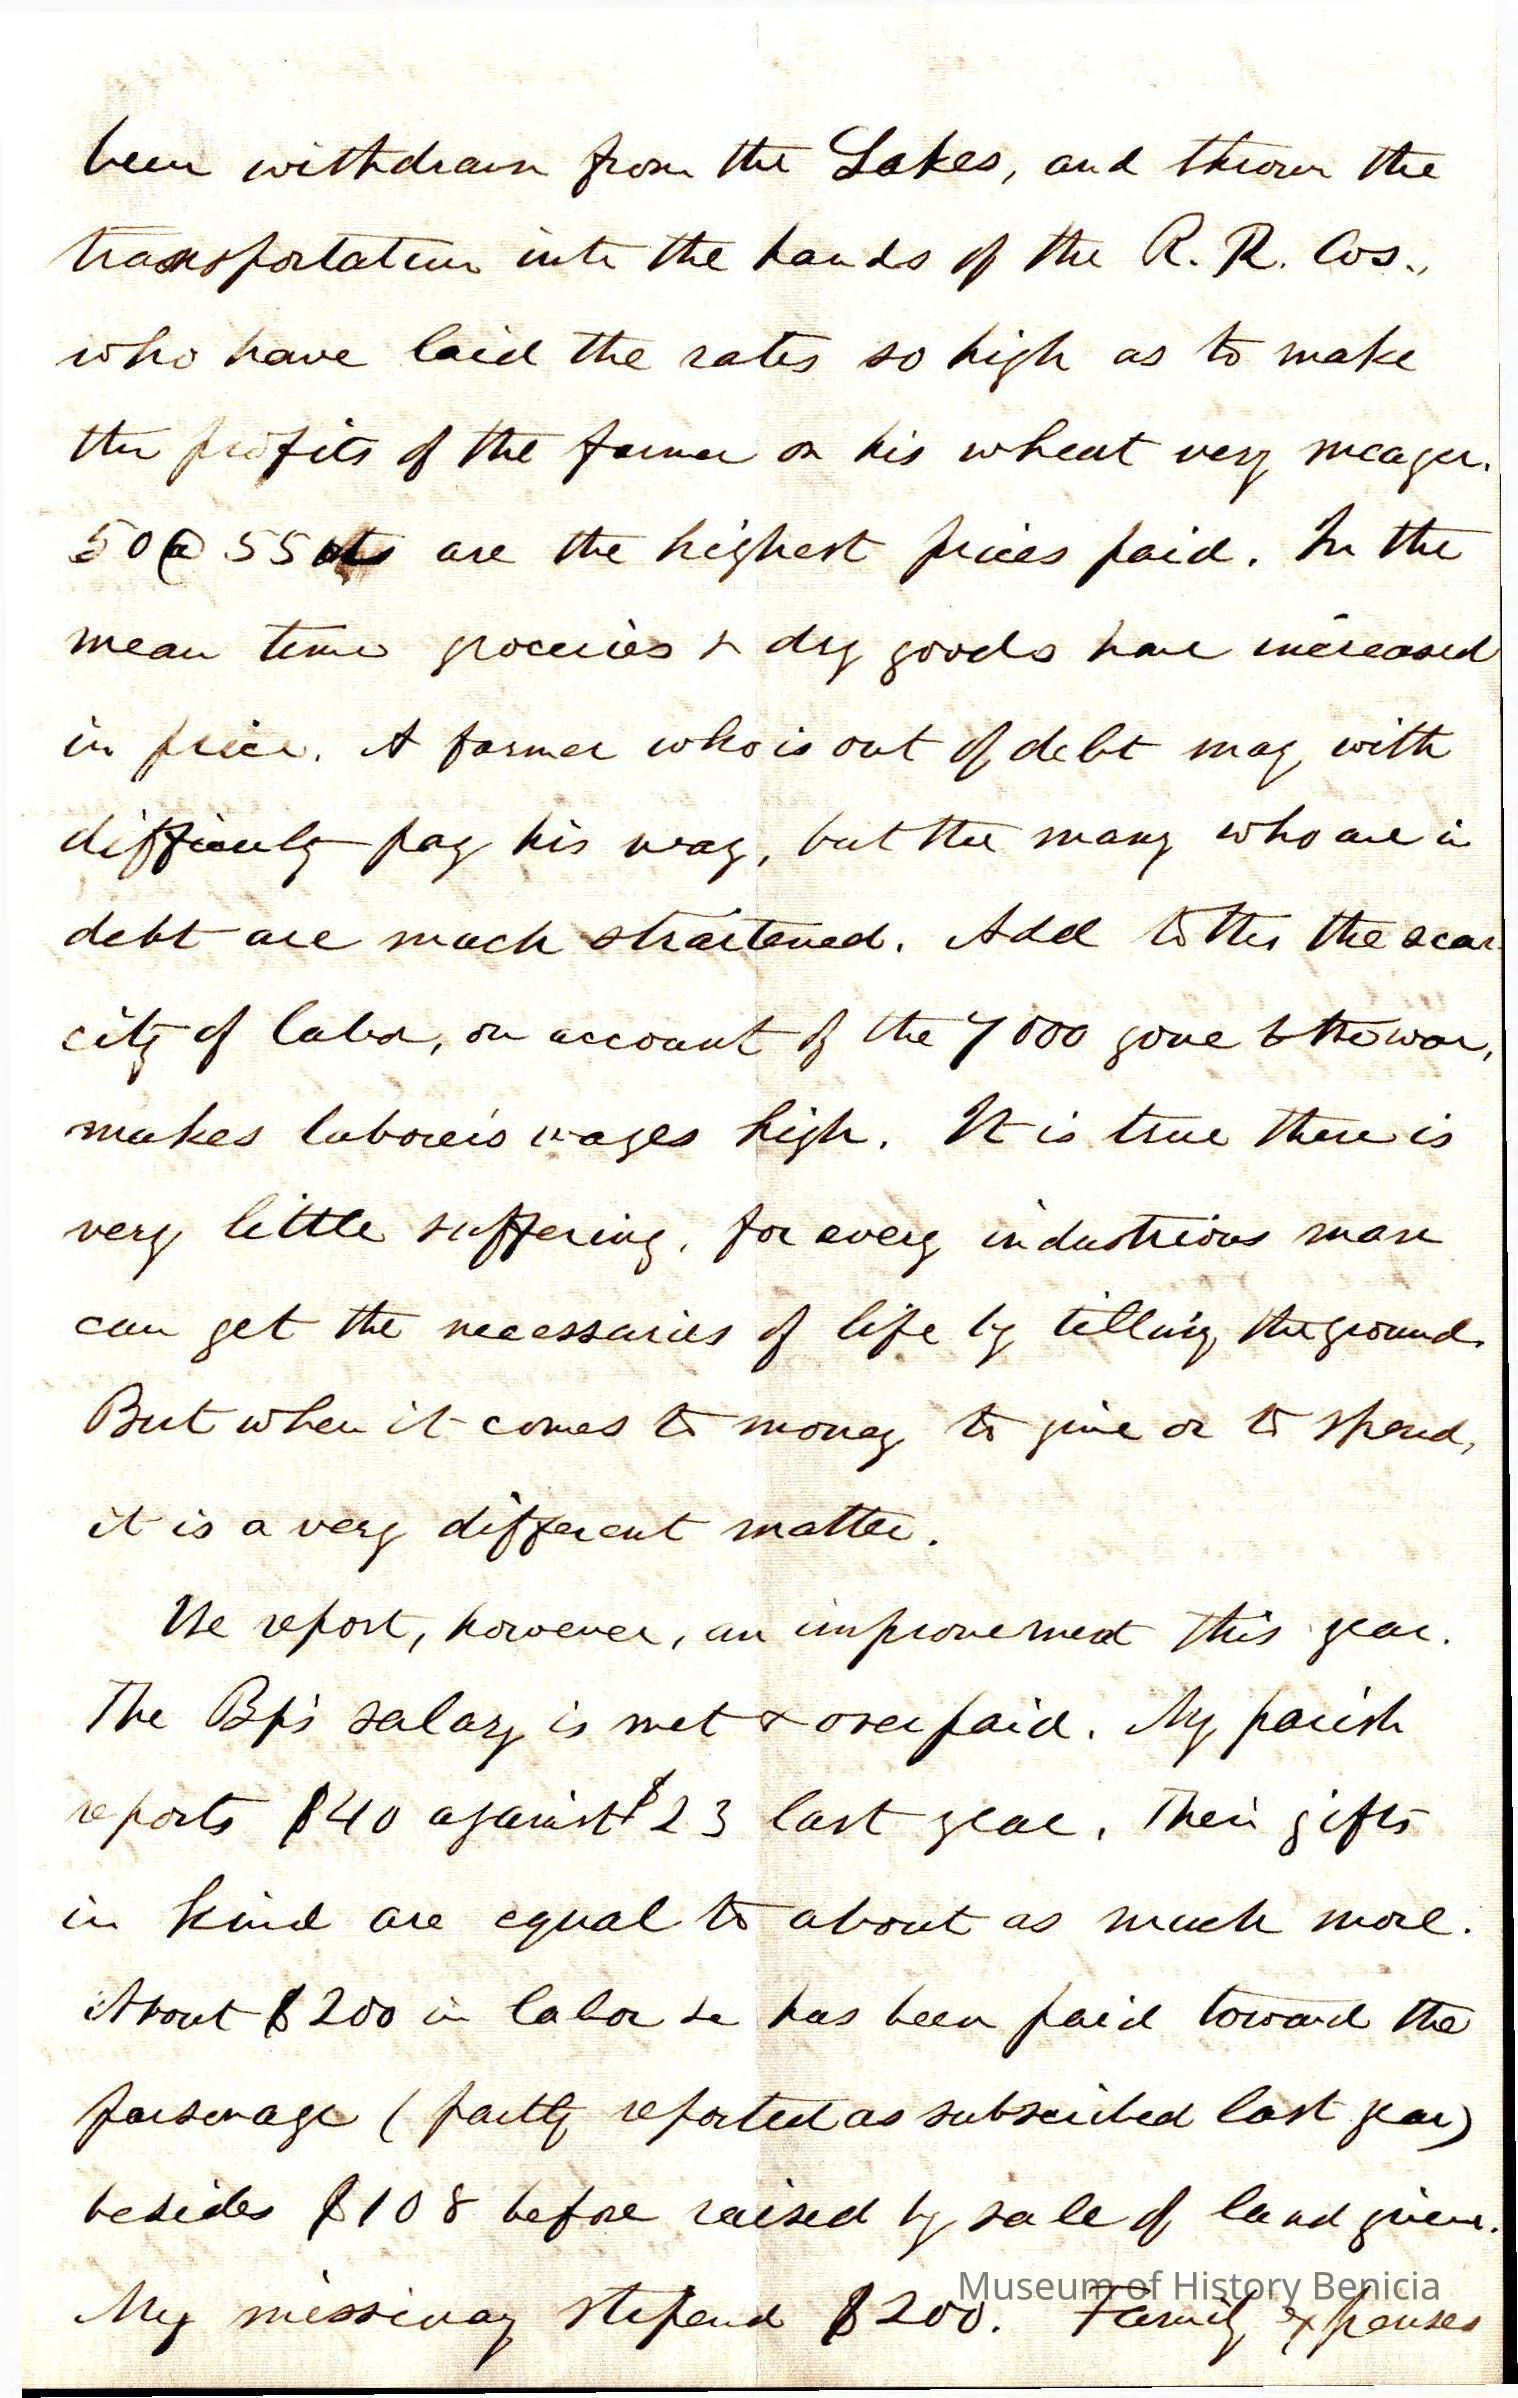 been withdrawn from the Lakes, and thrown the
transportation into the hands of the R. R. Cos.,
who have laid the rates so high as to make
the profits of the farmer on his wheat very meager.
50 @ 55 cts are the highest prices paid. In the
mean time groceries & dry goods have increased
in price. A farmer who is out of debt may with
difficulty pay his way, but the many who are in
debt are much straitened. Add to this the scar
city of labor, on account of the 7000 gone to the war,
makes laborer's wages high. It is true there is
very little suffering, for every industrious man
can get the necessaries of life by tilling the ground.
But when it comes to money to give or to spend,
it is a very different matter.
We report, however, an improvement this year.
The Bp's salary is met & overpaid. My parish
reports $40 against $23 last year. Their gifts
in kind are equal to about as much more.
About $200 in labor &c has been paid toward the
parsonage (partly reported as subscribed last year)
besides $108 before raised by sale of land given.
My missionary stipend $200. Family expenses
Museum of History Benicia